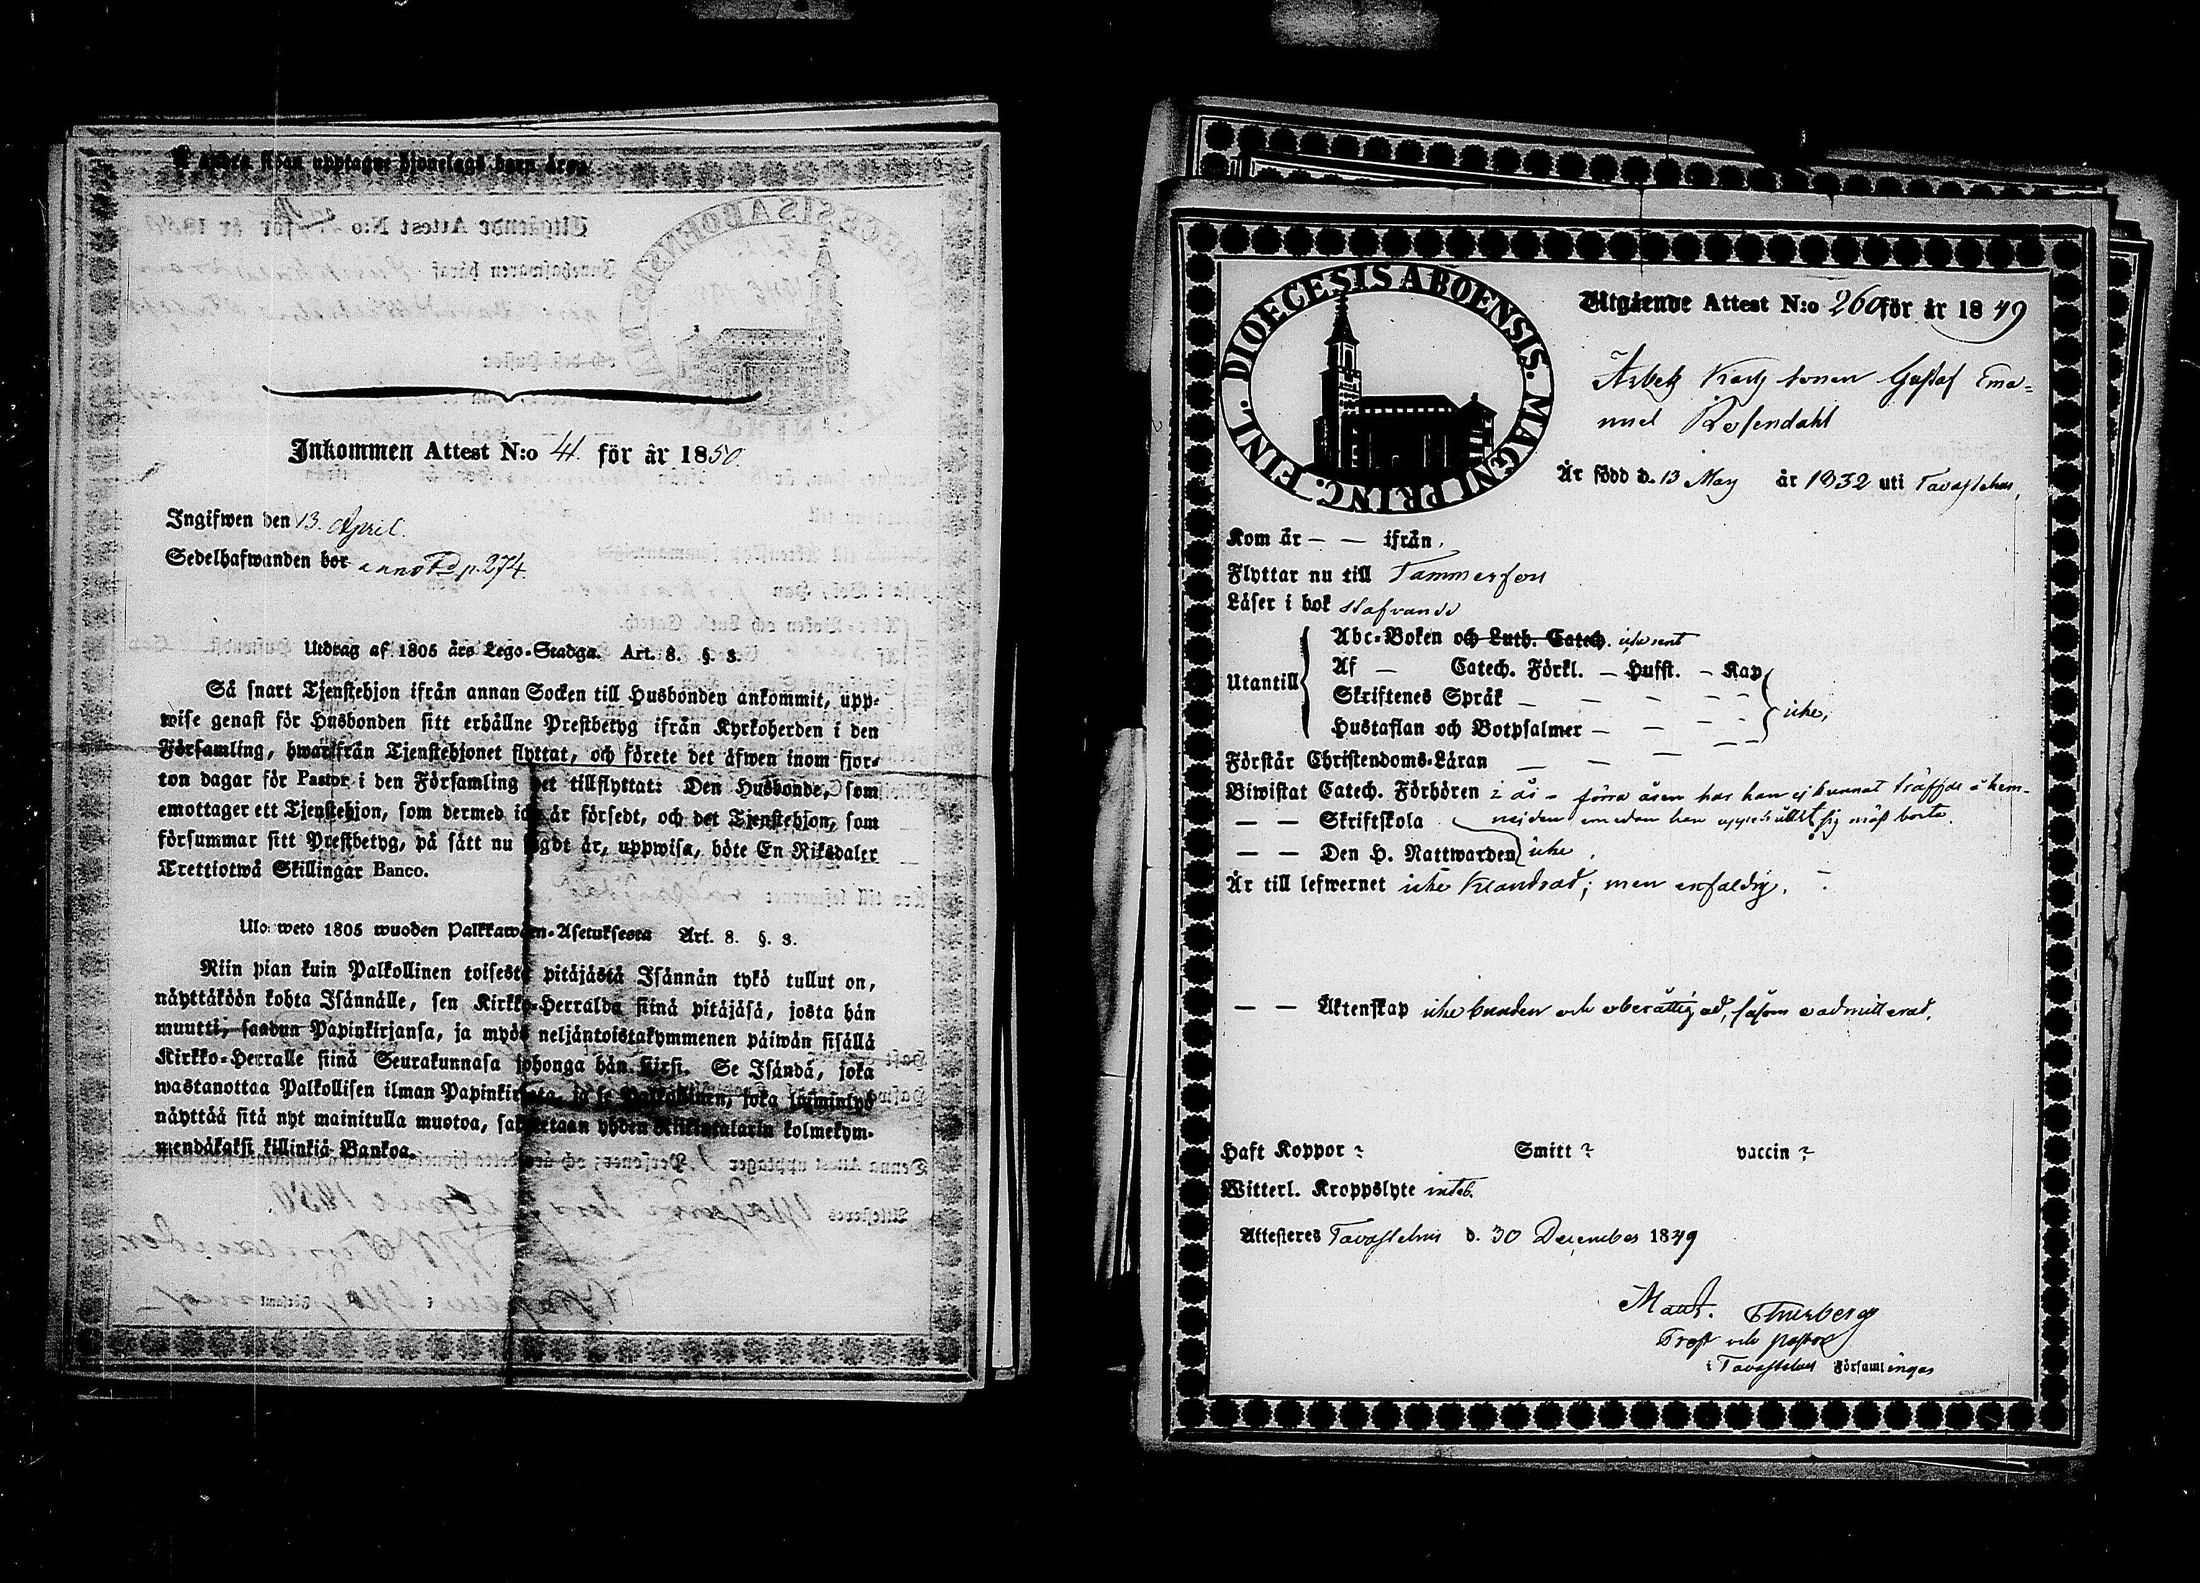 Inkommen Attest N:o 41. för år 1850.
Ingifwen den 13. April.
Sedelhafwanden bor annot. p. 274.
Utdrag af 1805 års Lego-Stadga. Art. 8. §. 3.
Så snart Tjenstehjon ifrån annan Socken till Husbonden ankommit, upp-
wise genast för Husbonden sitt erhållne Prestbetyg ifrån Kyrkoherden i den
Församling, hwarifrån Tjenstehjonet flyttat, och förete det äfwen inom fjor-
ton dagar för Pastor i den Församling det tillflyttat: Den Husbonde, som
emottager ett Tjenstehjon, som dermed icke är försedt, och det Tjenstehjon, som
försummar sitt Prestbetyg, på sätt nu sagdt är, uppwisa, böte En Riksdaler
Trettiotwå Skillingar Banco.
Ulos weto 1805 wuoden Palkkawäen-Asetuksesta Art. 8. §. 3.
Niin pian kuin Palkollinen toisesta pitäjästä Isännän tykö tullut on,
näyttäköön kohta Isännälle, sen Kirkko-Herralda siinä pitäjäsä, josta hän
muutti, saadun Papinkirjansa, ja myös neljäntoistakymmenen päiwän sisällä
Kirkko-Herralle siinä Seurakunnasa johonga hän siirsi. Se Isändä, joka
wastanottaa Palkollisen ilman Papinkirjata, ja se Palkollinen, joka laiminlyö
näyttää sitä nyt mainitulla muotoa, sakotetaan yhden Riikintalarin kolmekym-
mendäkaksi killinkiä Bankoa.
DIOECESIS ABOENSIS. MAGNI PRINC. FINL.
Utgående Attest N:o 260 för år 1849
Arbets Karls sonen Gustaf Ema-
nuel Rosendahl
Är född d. 13 May år 1832 uti Tavastehus,
Kom år — — ifrån
Flyttar nu till Tammerfors
Läser i bok stafvande
Utantill Abc-Boken och Luth. Catech. icke rent
Af — Catech. Förkl. — Husst. — Kap
Skriftenes Språk — — — —
Hustaflan och Botpsalmer — — — icke,
Förstår Christendoms-Läran — — — —
Biwistat Catech. Förhören i år - förra åren har han ej kunnat träffas å hem-
— — Skriftskola emedan han uppehållit sig mäst borta.
— — Den H. Nattwarden icke
Är till lefwernet icke klandrad; men enfaldig.
— — Äktenskap icke bunden och oberättigad, såsom oadmitterad.
Haft Koppor ? Smitt ? vaccin ?
Witterl. Kroppslyte intet.
Attesteres Tavastehus d. 30 December 1849
Maur. Thurberg
Prost och pastor
i Tavastehus Församlingar